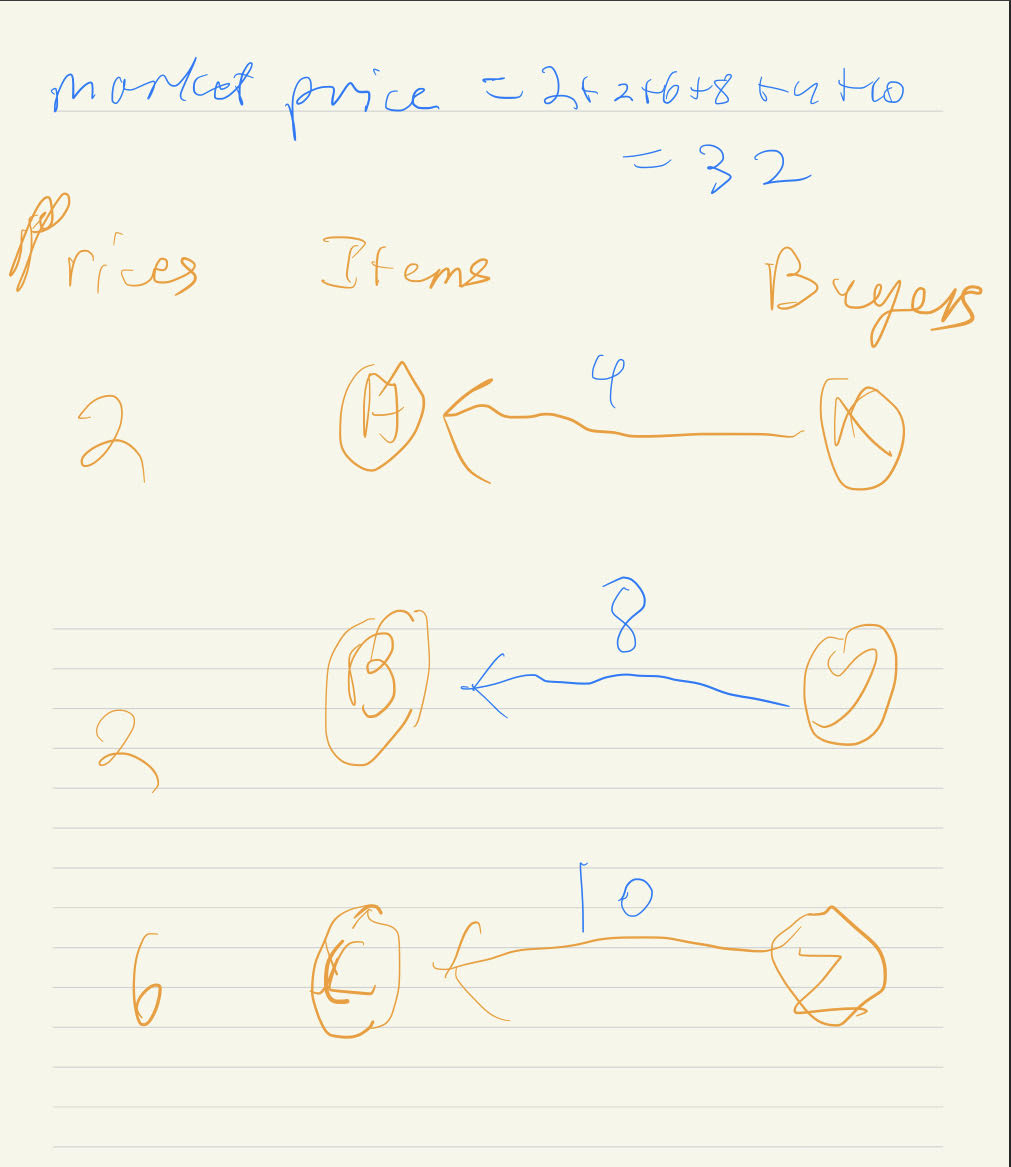 market price = 2+2+6+8+4+10
= 32
Prices Items Buyers
2 A 4 X
2 B 8 Y
6 C 10 Z